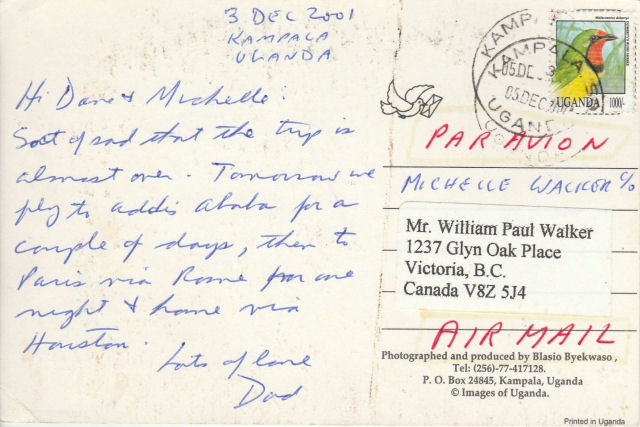 3 DEC 2001
KAMPALA
UGANDA
Hi Dave & Michelle:
Sort of sad that the trip is
almost over. Tomorrow we
fly to addis ababa for a
couple of days, then to
Paris via Rome for one
night & home via
Houston.
Lots of love
Dad
KAMPALA
UGANDA
05DEC
UGANDA 1000/-
PAR AVION
MICHELLE WALKER c/o
Mr. William Paul Walker
1237 Glyn Oak Place
Victoria, B.C.
Canada V8Z 5J4
AIR MAIL
Photographed and produced by Blasio Byekwaso,
Tel: (256)-77-417128.
P. O. Box 24845, Kampala, Uganda
© Images of Uganda.
Printed in Uganda